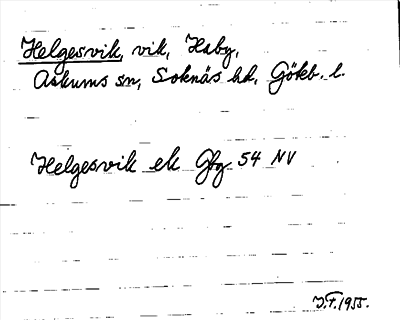 Helgesvik, vik, Haby,
Askums sn, Soknäs hd, Göteb. l.
Helgesvik ek Gbg 54 NV
J.T. 1955.